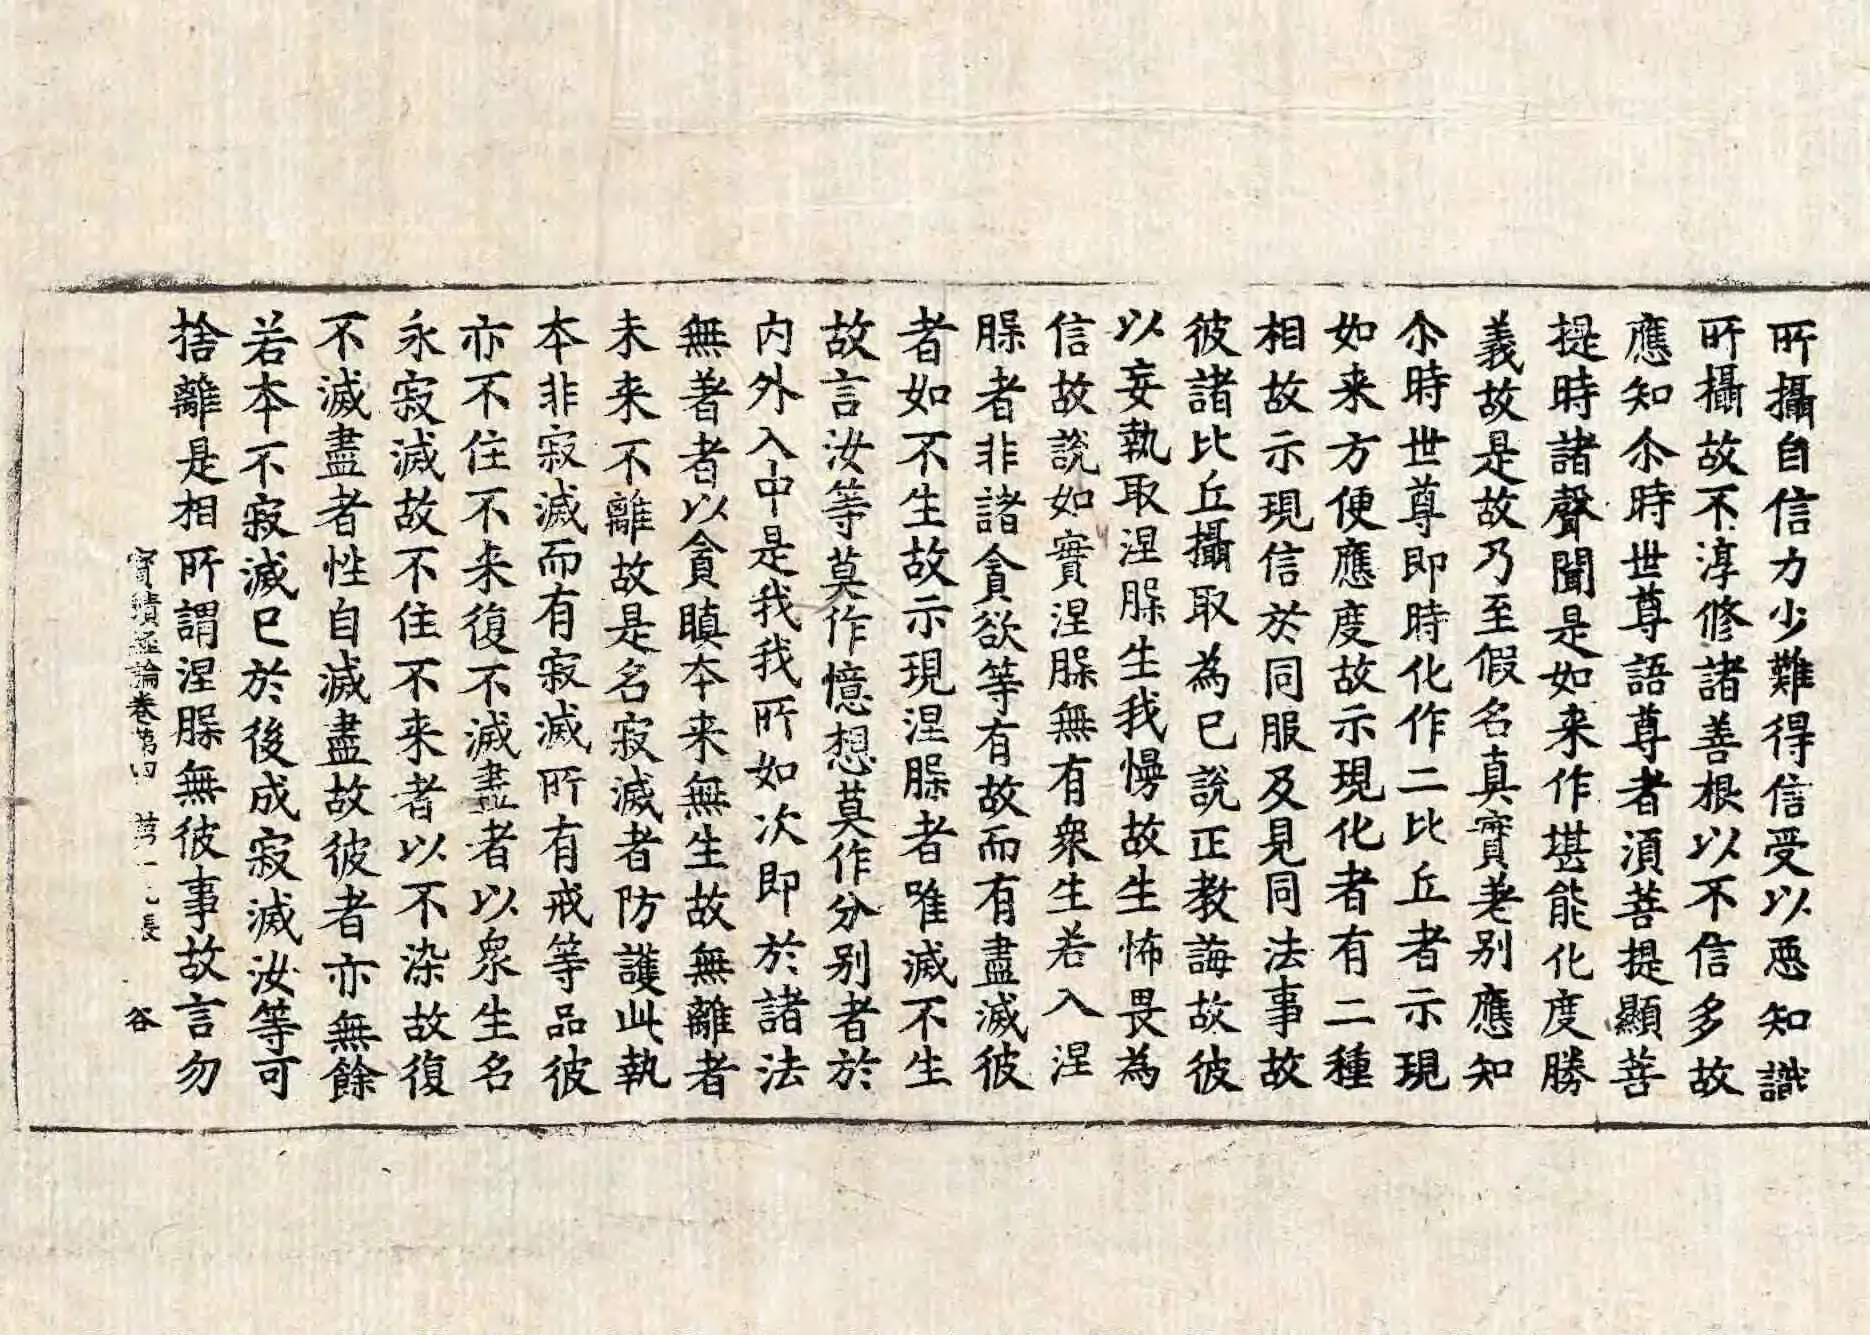 所攝自信力少難得信受以惡知識
所攝故不淳修諸善根以不信多故
應知尒時世尊語尊者湏菩提顯善
提時諸聲聞是如来作堪能化度勝
義故是故乃至假名真實差别應知
尒時世尊即時化作二比丘者示現
如来方便應度故示現化者有二種
相故示現信於同服及見同法事故
彼諸比丘攝取為已說正教誨故彼
以妄執取涅腺生我慢故生怖畏為
信故說如實涅腺無有衆生若入涅
腺者非諸貪欲等有故而有盡滅彼
者如不生故示現涅腺者唯滅不生
故言汝等莫作憶想莫作分别者於
内外入中是我我所如次即於諸法
無著者以貪瞋本来無生故無離者
未来不離故是名寂滅者防護此執
本非寂滅而有寂滅所有戒等品彼
亦不住不来復不滅盡者以衆生名
永寂滅故不住不来者以不染故復
不滅盡者性自滅盡故彼者亦無餘
若本不寂滅已於後成寂滅汝等可
捨離是相所謂涅腺無彼事故言勿
寳積論卷第四 第長 谷